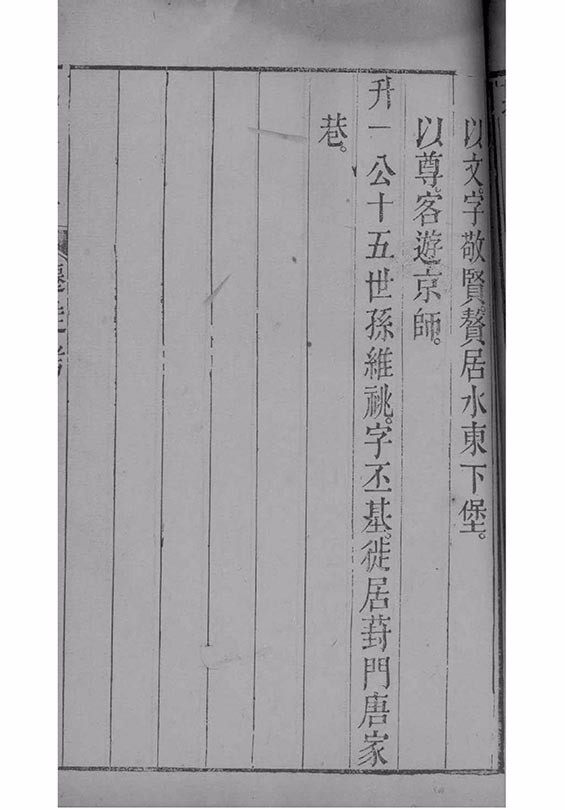 以文。字敬賢贅居水東下堡。
以尊。客遊京師。
升一公十五世孫維祧。字丕基。徙居葑門唐家
巷。
遷徙考